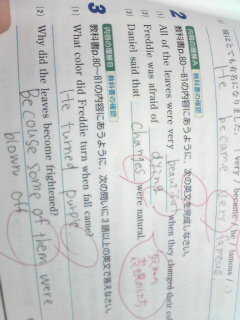 彼はとても有名になりました。 ( very / became / he / famous / . )
He became very famous
2 内容の確認A 教科書の確認
教科書p.80〜81の内容にあうように、次の英文を完成しなさい。
(1) All of the leaves were very beautiful when they changed their col
(2) Freddie was afraid of dying
(3) Daniel said that changes were natural.
3 内容の確認B 教科書の確認
教科書p.80〜81の内容にあうように、次の問いに3語以上の英文で答えなさい。
(1) What color did Freddie turn when fall came?
He turned purple
(2) Why did the leaves become frightened?
Because some of them were
blown off.